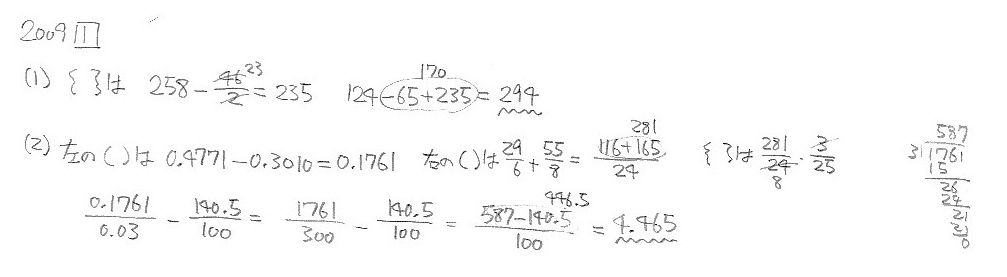 2009 1
(1) { }は 258 - 46/2 = 235 23 124 - 65 + 235 = 294 170
(2) 左の( )は 0.4771 - 0.3010 = 0.1761 右の( )は 29/6 + 55/8 = (116+165)/24 281 { }は 281/24 · 3/25 8
0.1761/0.03 - 140.5/100 = 1761/300 - 140.5/100 = (587-140.5)/100 446.5 = 4.465
587
3)1761
15
26
24
21
21
0